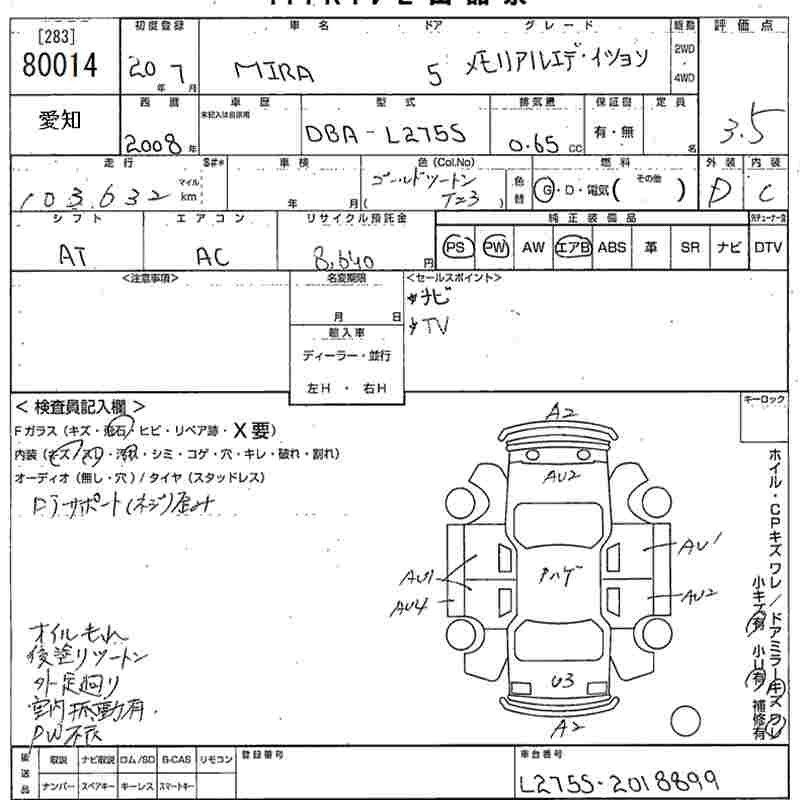 [283]
80014
初度登録
車名
ドア
グレード
駆動
評価点
20年7月
MIRA
5
メモリアルエディション
2WD
4WD
3.5
愛知
西暦
車歴
型式
排気量
保証書
定員
2008年
未記入は自家用
DBA-L275S
0.65cc
有・無
名
走行
車検
色(Col.No)
燃料
外装
内装
103,632
マイル
km
年
月
ゴールドツートン
T23
色替
G・D・電気(その他)
D
C
シフト
エアコン
リサイクル預託金
純正装備品
AT
AC
8,640円
PS
PW
AW
エアB
ABS
革
SR
ナビ
DTV
<注意事項>
名変期限
<セールスポイント>
月
日
ナビ
TV
輸入車
ディーラー・並行
左H・右H
<検査員記入欄>
キーロック
Fガラス(キズ・飛石・ヒビ・リペア跡・X要)
内装(キズ・スリ・汚れ・シミ・コゲ・穴・キレ・破れ・割れ)
オーディオ(無し・穴)/タイヤ(スタッドレス)
Dラサポート(ネジ)歪み
A2
AU2
AU1
AU1
ハゲ
AU4
AU2
U3
A2
ホイル・CPキズワレ/ドアミラーキズワレ
小キズ有 小U有 補修有
オイルもれ
後塗りツートン
外足廻り
室内振動有
PW不良
後送品
取説
ナビ取説
ロム/SD
B-CAS
リモコン
登録番号
車台番号
ナンバー
スペアキー
キーレス
スマートキー
L275S-2018899